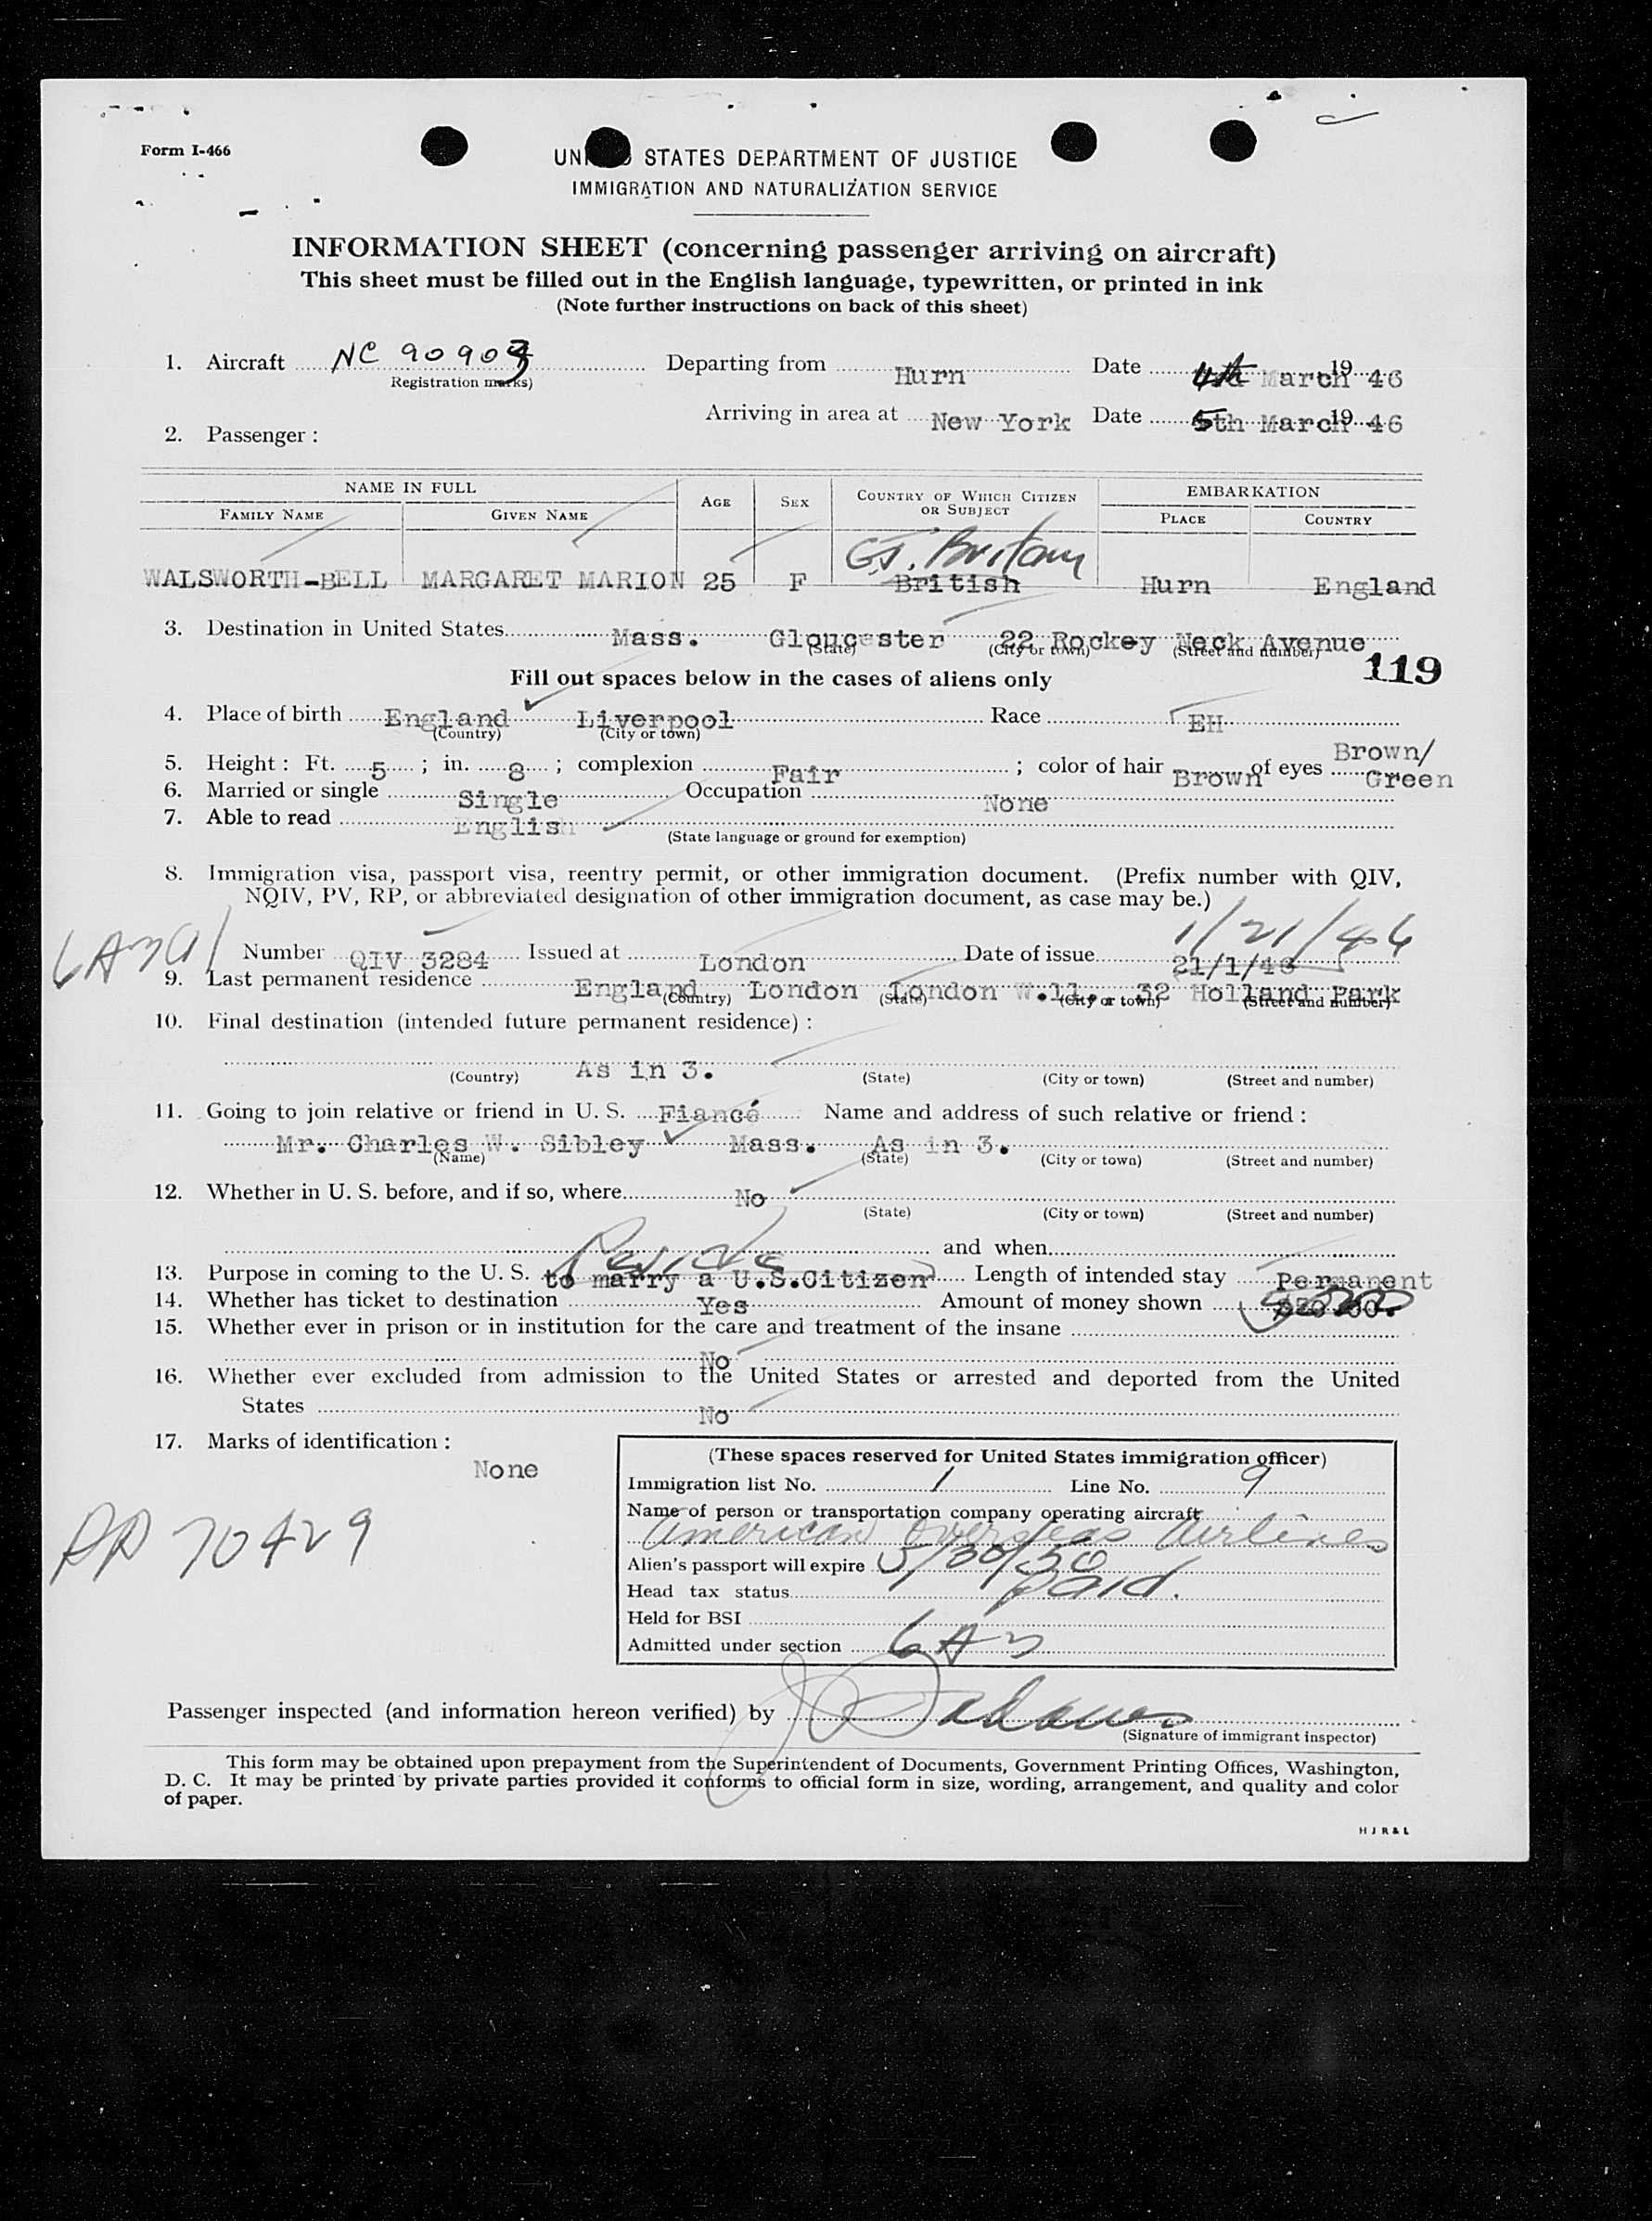 Form I-466
UNITED STATES DEPARTMENT OF JUSTICE
IMMIGRATION AND NATURALIZATION SERVICE
INFORMATION SHEET (concerning passenger arriving on aircraft)
This sheet must be filled out in the English language, typewritten, or printed in ink
(Note further instructions on back of this sheet)
1. Aircraft NC 90903 Departing from Hurn Date 4th March 1946
(Registration marks)
Arriving in area at New York Date 5th March 1946
2. Passenger :
NAME IN FULL AGE SEX COUNTRY OF WHICH CITIZEN OR SUBJECT EMBARKATION
FAMILY NAME GIVEN NAME PLACE COUNTRY
Gt. Britain
WALSWORTH-BELL MARGARET MARION 25 F British Hurn England
3. Destination in United States Mass. Gloucester 22 Rockey Neck Avenue
(State) (City or town) (Street and number)
119
Fill out spaces below in the cases of aliens only
4. Place of birth England Liverpool Race EH
(Country) (City or town)
5. Height : Ft. 5 ; in. 8 ; complexion Fair ; color of hair Brown of eyes Brown/Green
6. Married or single Single Occupation None
7. Able to read English
(State language or ground for exemption)
8. Immigration visa, passport visa, reentry permit, or other immigration document. (Prefix number with QIV,
NQIV, PV, RP, or abbreviated designation of other immigration document, as case may be.)
1/21/46
Number QIV 3284 Issued at London Date of issue 21/1/46
9. Last permanent residence England London London W.11. 32 Holland Park
(Country) (State) (City or town) (Street and number)
10. Final destination (intended future permanent residence) :
As in 3.
(Country) (State) (City or town) (Street and number)
11. Going to join relative or friend in U. S. Fiancé Name and address of such relative or friend :
Mr. Charles W. Sibley Mass. As in 3.
(Name) (State) (City or town) (Street and number)
12. Whether in U. S. before, and if so, where No
(State) (City or town) (Street and number)
and when
Reside
13. Purpose in coming to the U. S. to marry a U.S.Citizen Length of intended stay Permanent
14. Whether has ticket to destination Yes Amount of money shown
15. Whether ever in prison or in institution for the care and treatment of the insane
No
16. Whether ever excluded from admission to the United States or arrested and deported from the United
States No
17. Marks of identification :
None
PP 70429
(These spaces reserved for United States immigration officer)
Immigration list No. 1 Line No. 9
Name of person or transportation company operating aircraft
American Overseas Airlines
Alien's passport will expire 5/30/50
Head tax status paid.
Held for BSI
Admitted under section 6A3
Passenger inspected (and information hereon verified) by
(Signature of immigrant inspector)
This form may be obtained upon prepayment from the Superintendent of Documents, Government Printing Offices, Washington,
D. C. It may be printed by private parties provided it conforms to official form in size, wording, arrangement, and quality and color
of paper.
H J R & L